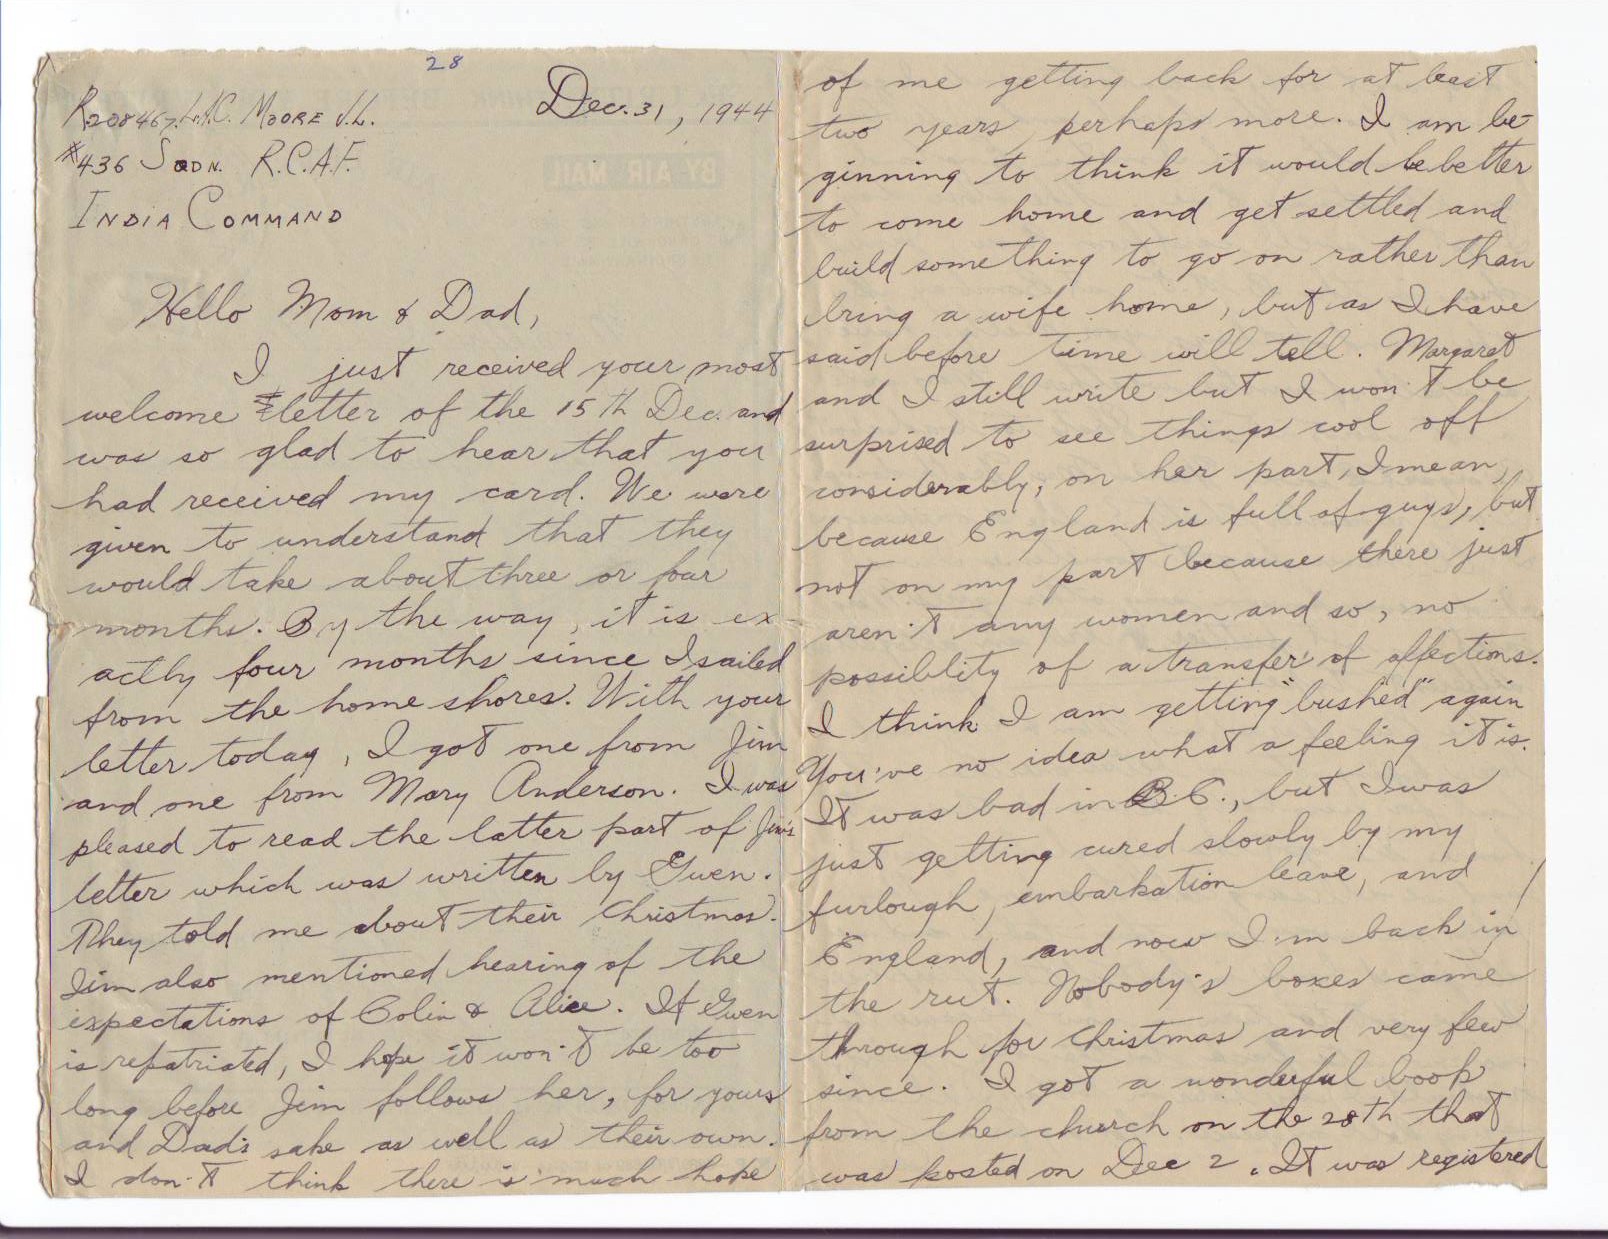 28
R208467. L.A.C. MOORE J.L.
Dec. 31, 1944
#436 SQDN. R.C.A.F.
INDIA COMMAND
BY AIR MAIL
Hello Mom & Dad,
I just received your most
welcome letter of the 15th Dec. and
was so glad to hear that you
had received my card. We were
given to understand that they
would take about three or four
months. By the way, it is ex-
actly four months since I sailed
from the home shores. With your
letter today, I got one from Jim
and one from Mary Anderson. I was
pleased to read the latter part of Jim's
letter which was written by Gwen.
They told me about their Christmas.
Jim also mentioned hearing of the
expectations of Colin & Alice. If Gwen
is repatriated, I hope it won't be too
long before Jim follows her, for yours
and Dad's sake as well as their own.
I don't think there is much hope
of me getting back for at least
two years, perhaps more. I am be-
ginning to think it would be better
to come home and get settled and
build something to go on rather than
bring a wife home, but as I have
said before time will tell. Margaret
and I still write but I won't be
surprised to see things cool off
considerably, on her part, I mean,
because England is full of guys, but
not on my part because there just
aren't any women and so, no
possiblity of a transfer of affections.
I think I am getting "bushed" again
You've no idea what a feeling it is.
It was bad in B.C., but I was
just getting cured slowly by my
furlough, embarkation leave, and
England, and now I'm back in
the rut. Nobody's boxes came
through for Christmas and very few
since. I got a wonderful book
from the church on the 28th that
was posted on Dec 2. It was registered